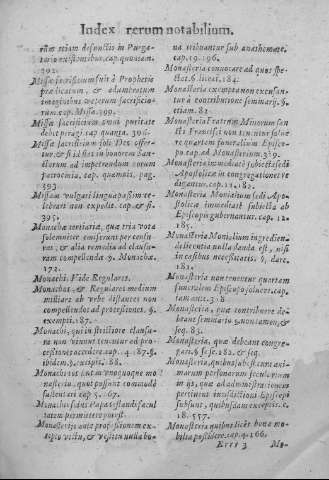 Index rerum notabilium.
rum etiam defunctis in Purga-
torio existentibus. cap. quoniam.
392.
Missæ sacrificium fuit à Prophetis
prædicatum, & adumbratum
imaginibus veterum sacrificio-
rum. cap. Missa. 399.
Missæ sacrificium omni puritate
debet peragi. cap. quanta. 396.
Missæ sacrificium soli Deo offer-
tur, & si id fiat in honorem San-
ctorum ad impetrandum eorum
patrocinia. cap. quamuis. pag.
393.
Missam vulgari lingua passim ce-
lebrari non expedit. cap. & si.
395.
Monachæ tertiaria, quæ tria vota
solemniter emiserunt per censu-
ras, & alia remedia ad clausu-
ram compellendæ. 9. Monachæ.
172.
Monachi. Vide Regulares.
Monachos, & Regulares medium
milliare ab vrbe distantes non
compellendos ad processiones. 9.
exempti. 187.
Monachi, qui in strictiore clausu-
ra non viuunt tenentur ad pro-
cessiones accedere. cap. 4. 187. 9.
ibidem. 9. excipit. 188.
Monachorum
nasterio, quot possunt commodè
sustentari cap. 5. 167.
latem permittere potest.
Monasterijs ante professionem ex-
cepto victu, & vestitu nulla bo-
na tribuantur sub anathemate.
cap. 19. 196.
Monasteria conuocare ad quos spe-
ctet. 6. liceat. 184.
Monasteria exempta non excusan-
tur à contributione seminarij. 9.
etiam. 81.
Monasteria Fratrum Minorum san-
cti Francisci non tenentur solue-
re quartam funeralium Episco-
po cap. ad Monasterium. 319.
Monasteria immediatè subiecta sedi
Apostolicæ in congregationes re-
digantur. cap. 11. 182.
Monasteria Monialium sedi Apo-
stolicæ immediatè subiecta ab
Episcopis gubernantur. cap. 12.
185.
Monasteria Monialium ingredien-
di licentia nulla danda est, nisi
in casibus necessitatis. 9. dare.
181.
Monasteria non tenentur quartam
funeralem Episcopo soluere. cap.
tam ant. 318
Monasteria, quæ contribuere de-
beant seminario. 9. nonautem, &
seq. 83.
Monasteria, quæ debeant congre-
gari. 9. & sic. 182. & seq.
Monasteria, quibus subest cura ani-
marum personarum sæcularium
in ijs, quæ ad administrationem
pertinent iurisdictioni Episcopi
subsunt, quibusdam exceptis. c.
18. 557.
Monasteria quibus licet bona mo-
bilia possidere. cap. 9. 166.
Eree 3 Mo-